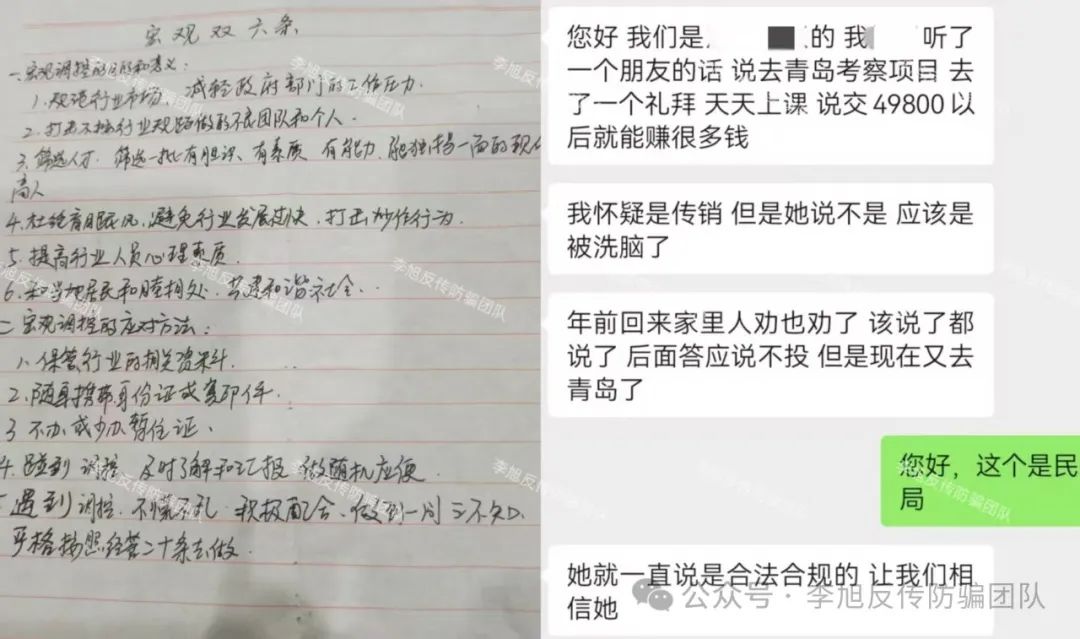 宏观双六条
一、宏观调控的目的和意义:
1、规范行业市场、减轻政府部门的工作压力.
2.打击不按行业规路做的不良团队和个人.
3.筛选人才.筛选一批有胆识、有素质 有能力、能独挡一面的
高人
4.杜绝盲目跟风,避免行业发展过快.打击炒作行为.
5.提高行业人员心理素质.
6.和当地居民和睦相处.共建和谐社会.
二宏观调控的应对方法:
1、保管行业的相关资料.
2.随身携带身份证或复印件.
3 不办或少办暂住证、
4.碰到调控 及时了解和汇报 做随机应便.
遇到调控.不慌不乱.积极配合、做到一问三不知.
严格按照经营二十条去做.
您好 我们是 的 我 听了
一个朋友的话 说去青岛考察项目 去
了一个礼拜 天天上课 说交 49800 以
后就能赚很多钱
我怀疑是传销 但是她说不是 应该是
被洗脑了
年前回来家里人劝也劝了 该说了都
说了 后面答应说不投 但是现在又去
青岛了
您好，这个是民
局
她就一直说是合法合规的 让我们相
信她
公众号·李旭反传防骗团队
李旭反传防骗团队